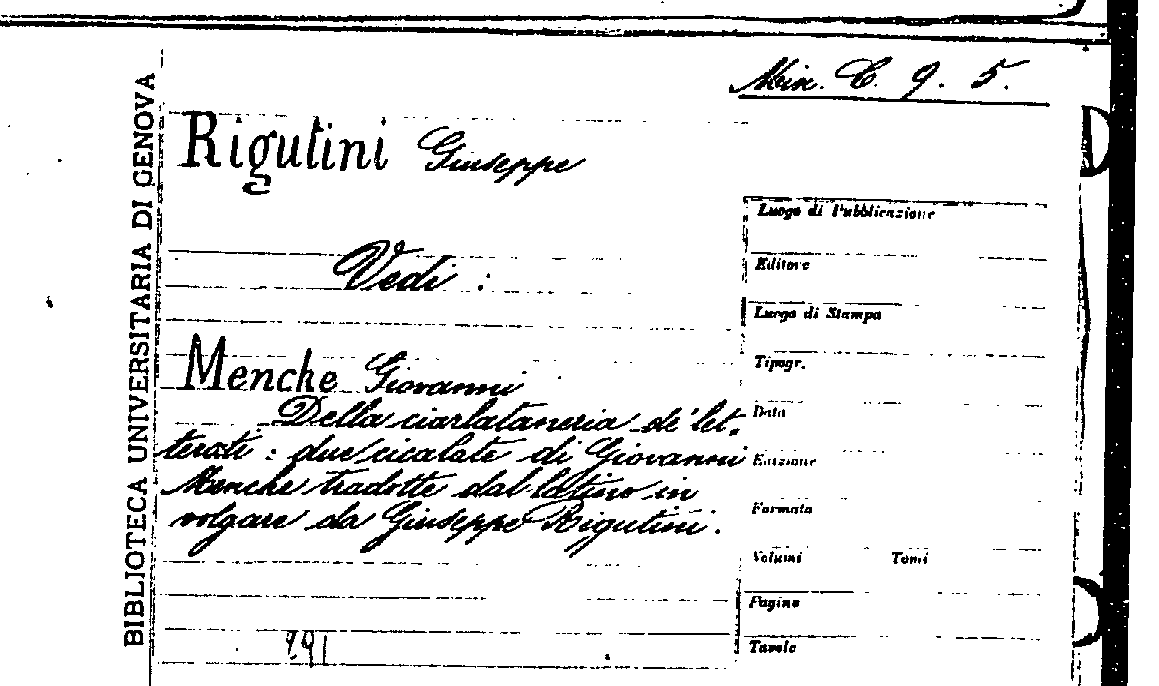 Min. C. 9. 5.
BIBLIOTECA UNIVERSITARIA DI GENOVA
Rigutini Giuseppe
Vedi :
Menche Giovanni
Della ciarlataneria de' let-
terati : due cicalate di Giovanni
Menche tradotte dal latino in
volgare da Giuseppe Rigutini.
Luogo di Pubblicazione
Editore
Luogo di Stampa
Tipogr.
Data
Edizione
Formato
Volumi Tomi
Pagine
Tavole